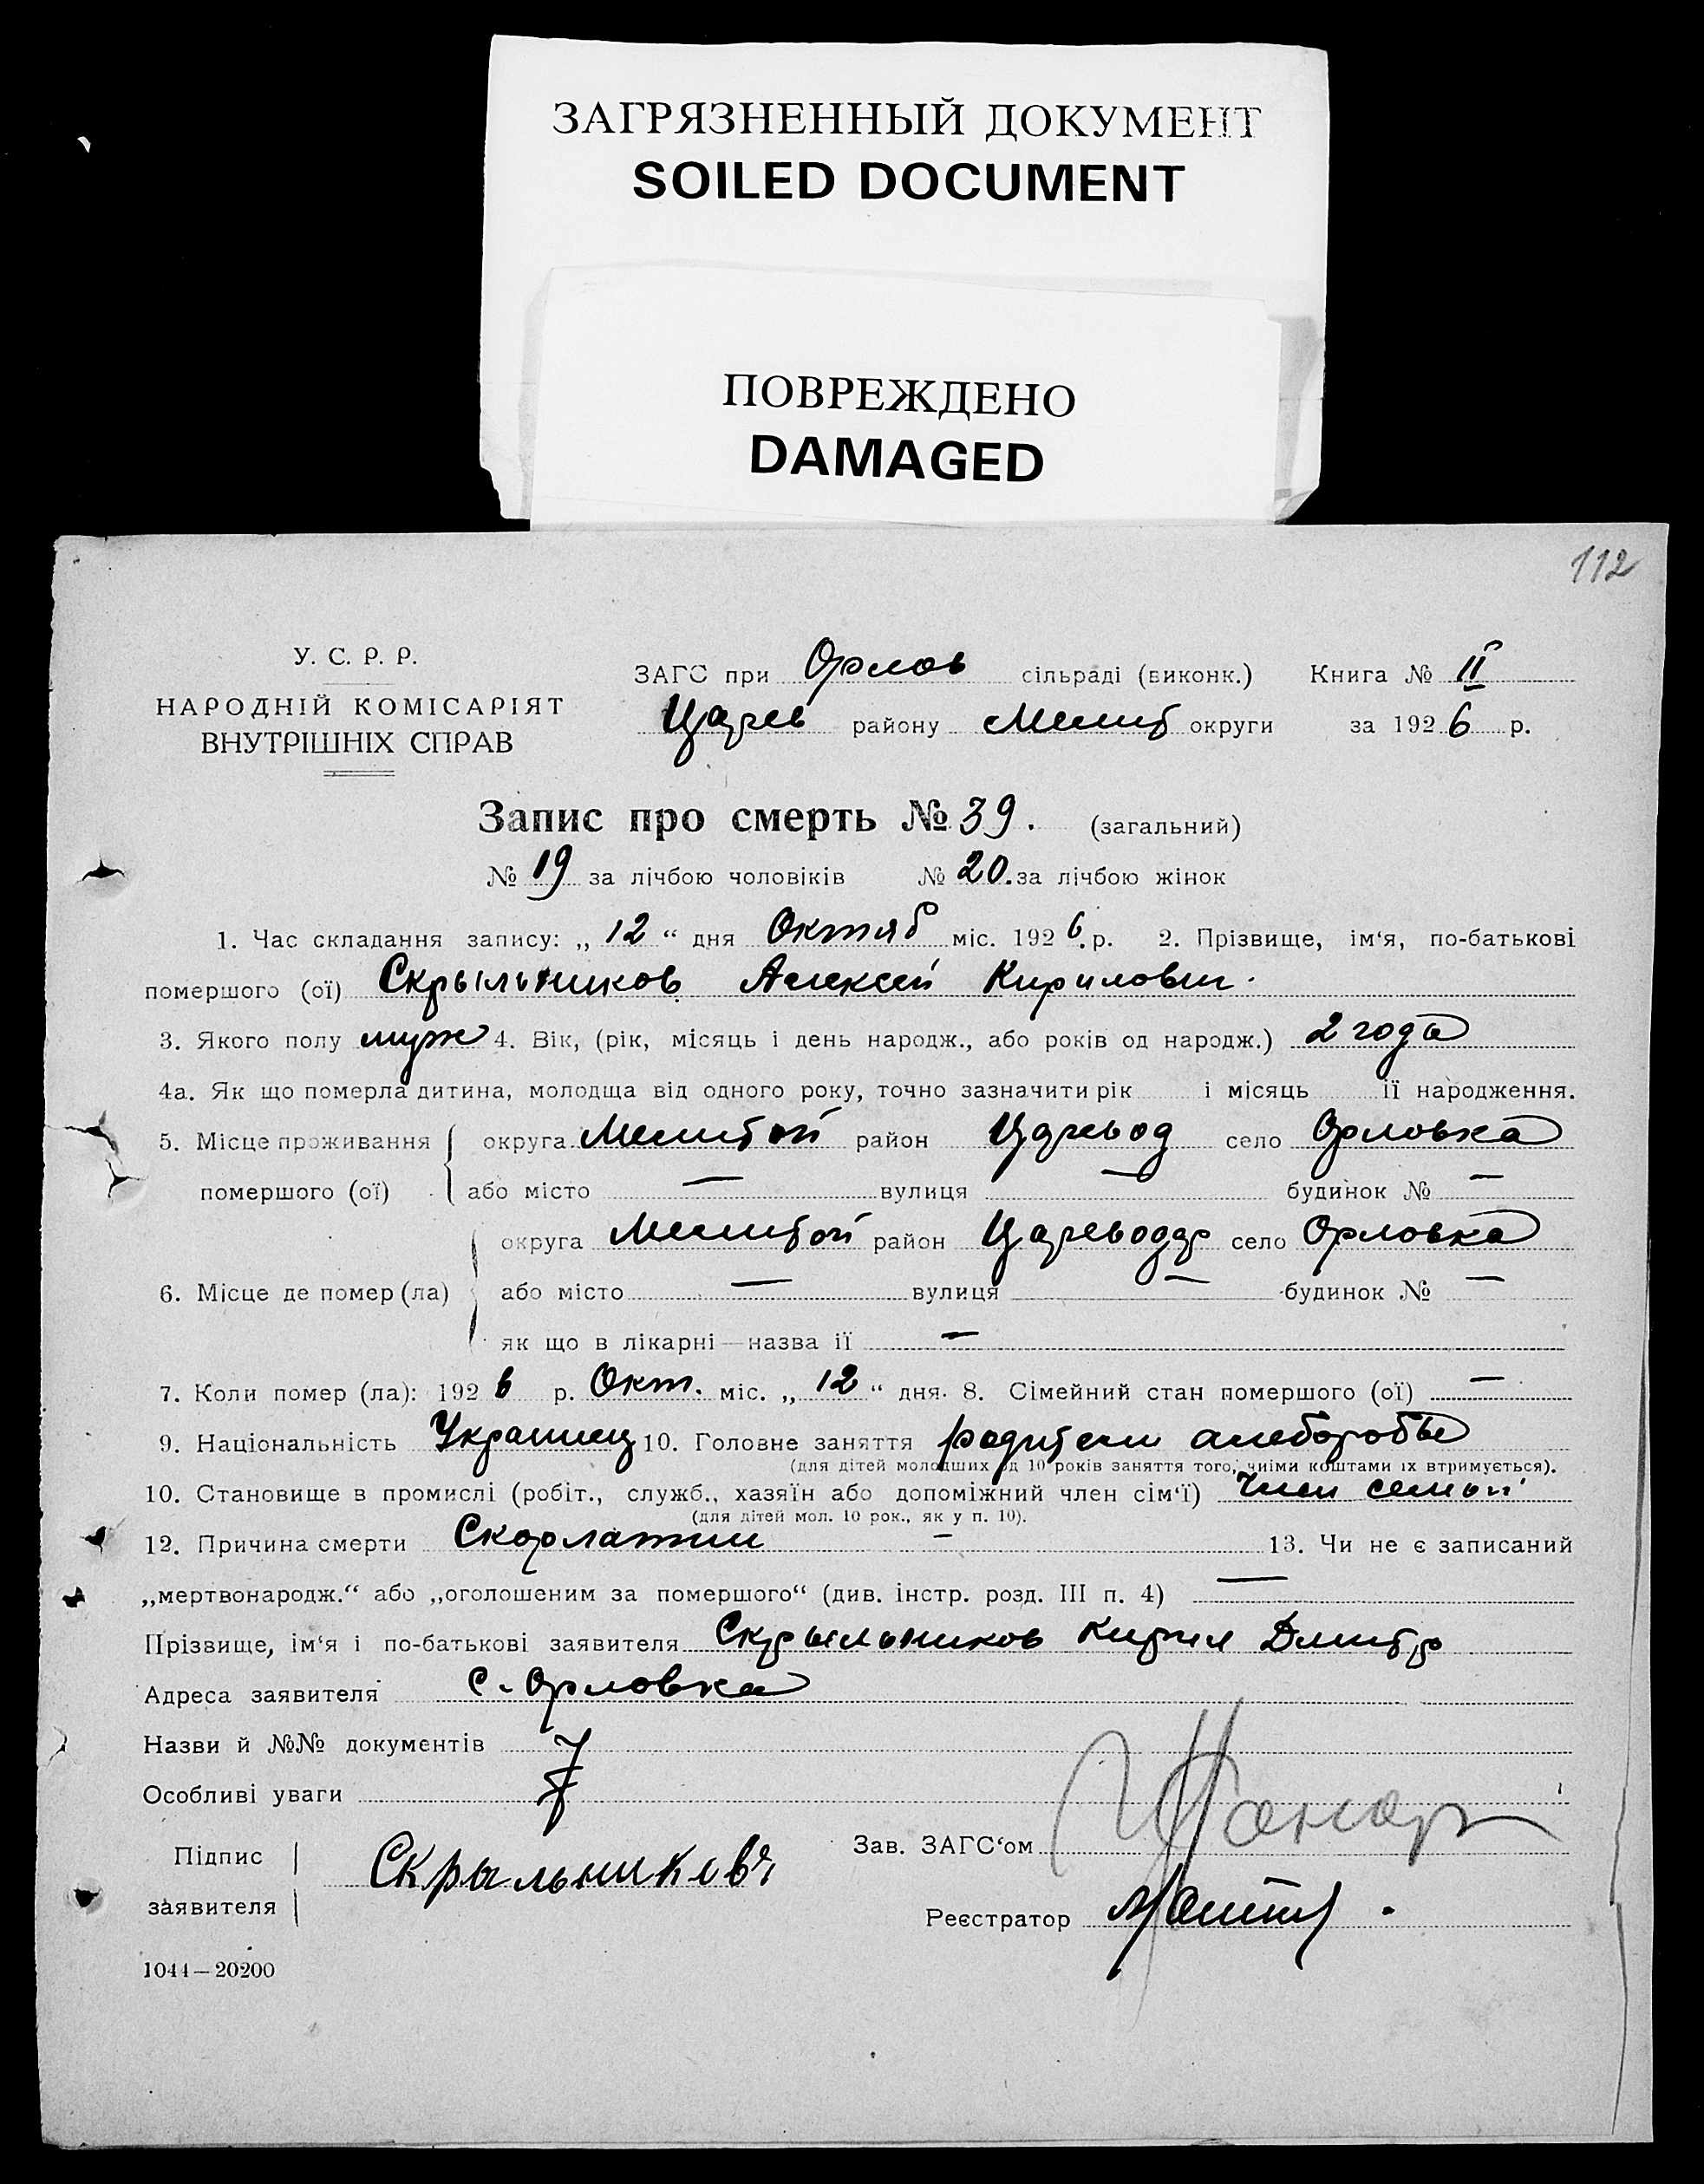 ЗАГРЯЗНЕННЫЙ ДОКУМЕНТ
SOILED DOCUMENT
ПОВРЕЖДЕНО
DAMAGED
112
У. С. Р. Р.
НАРОДНІЙ КОМІСАРІЯТ
ВНУТРІШНІХ СПРАВ
ЗАГС при Орлов сільраді (виконк.) Книга № II
Царев району Мелит округи за 1926 р.
Запис про смерть № 39. (загальний)
№ 19 за лічбою чоловіків № 20. за лічбою жінок
1. Час складання запису: „12“ дня Октяб міс. 1926 р. 2. Прізвище, ім‘я, по-батькові
помершого (ої) Скрыльников Алексей Кирилович.
3. Якого полу муж 4. Вік, (рік, місяць і день народж., або років од народж.) 2 года
4а. Як що померла дитина, молодща від одного року, точно зазначити рік і місяць її народження.
5. Місце проживання округа Мелитой район Царевод село Орловка
помершого (ої) або місто — вулиця — будинок № —
округа Мелитой район Цареводар село Орловка
6. Місце де помер (ла) або місто — вулиця — будинок № —
як що в лікарні — назва її —
7. Коли помер (ла): 1926 р. Окт. міс. „12“ дня. 8. Сімейний стан помершого (ої) —
9. Національність Украинец 10. Головне заняття родители
(для дітей молодших од 10 років заняття того, чиїми коштами їх втримується).
10. Становище в промислі (робіт., служб., хазяїн або допоміжний член сім‘ї) Член семьи
(для дітей мол. 10 рок., як у п. 10).
12. Причина смерти Скорлатини — 13. Чи не є записаний
„мертвонародж.“ або „оголошеним за помершого“ (див. інстр. розд. III п. 4) —
Прізвище, ім‘я і по-батькові заявителя Скрыльников Кирил Дмитр
Адреса заявителя с. Орловка
Назви й №№ документів
Особливі уваги
Підпис
заявителя
Скрыльников
Зав. ЗАГС‘ом
Реєстратор
1044—20200